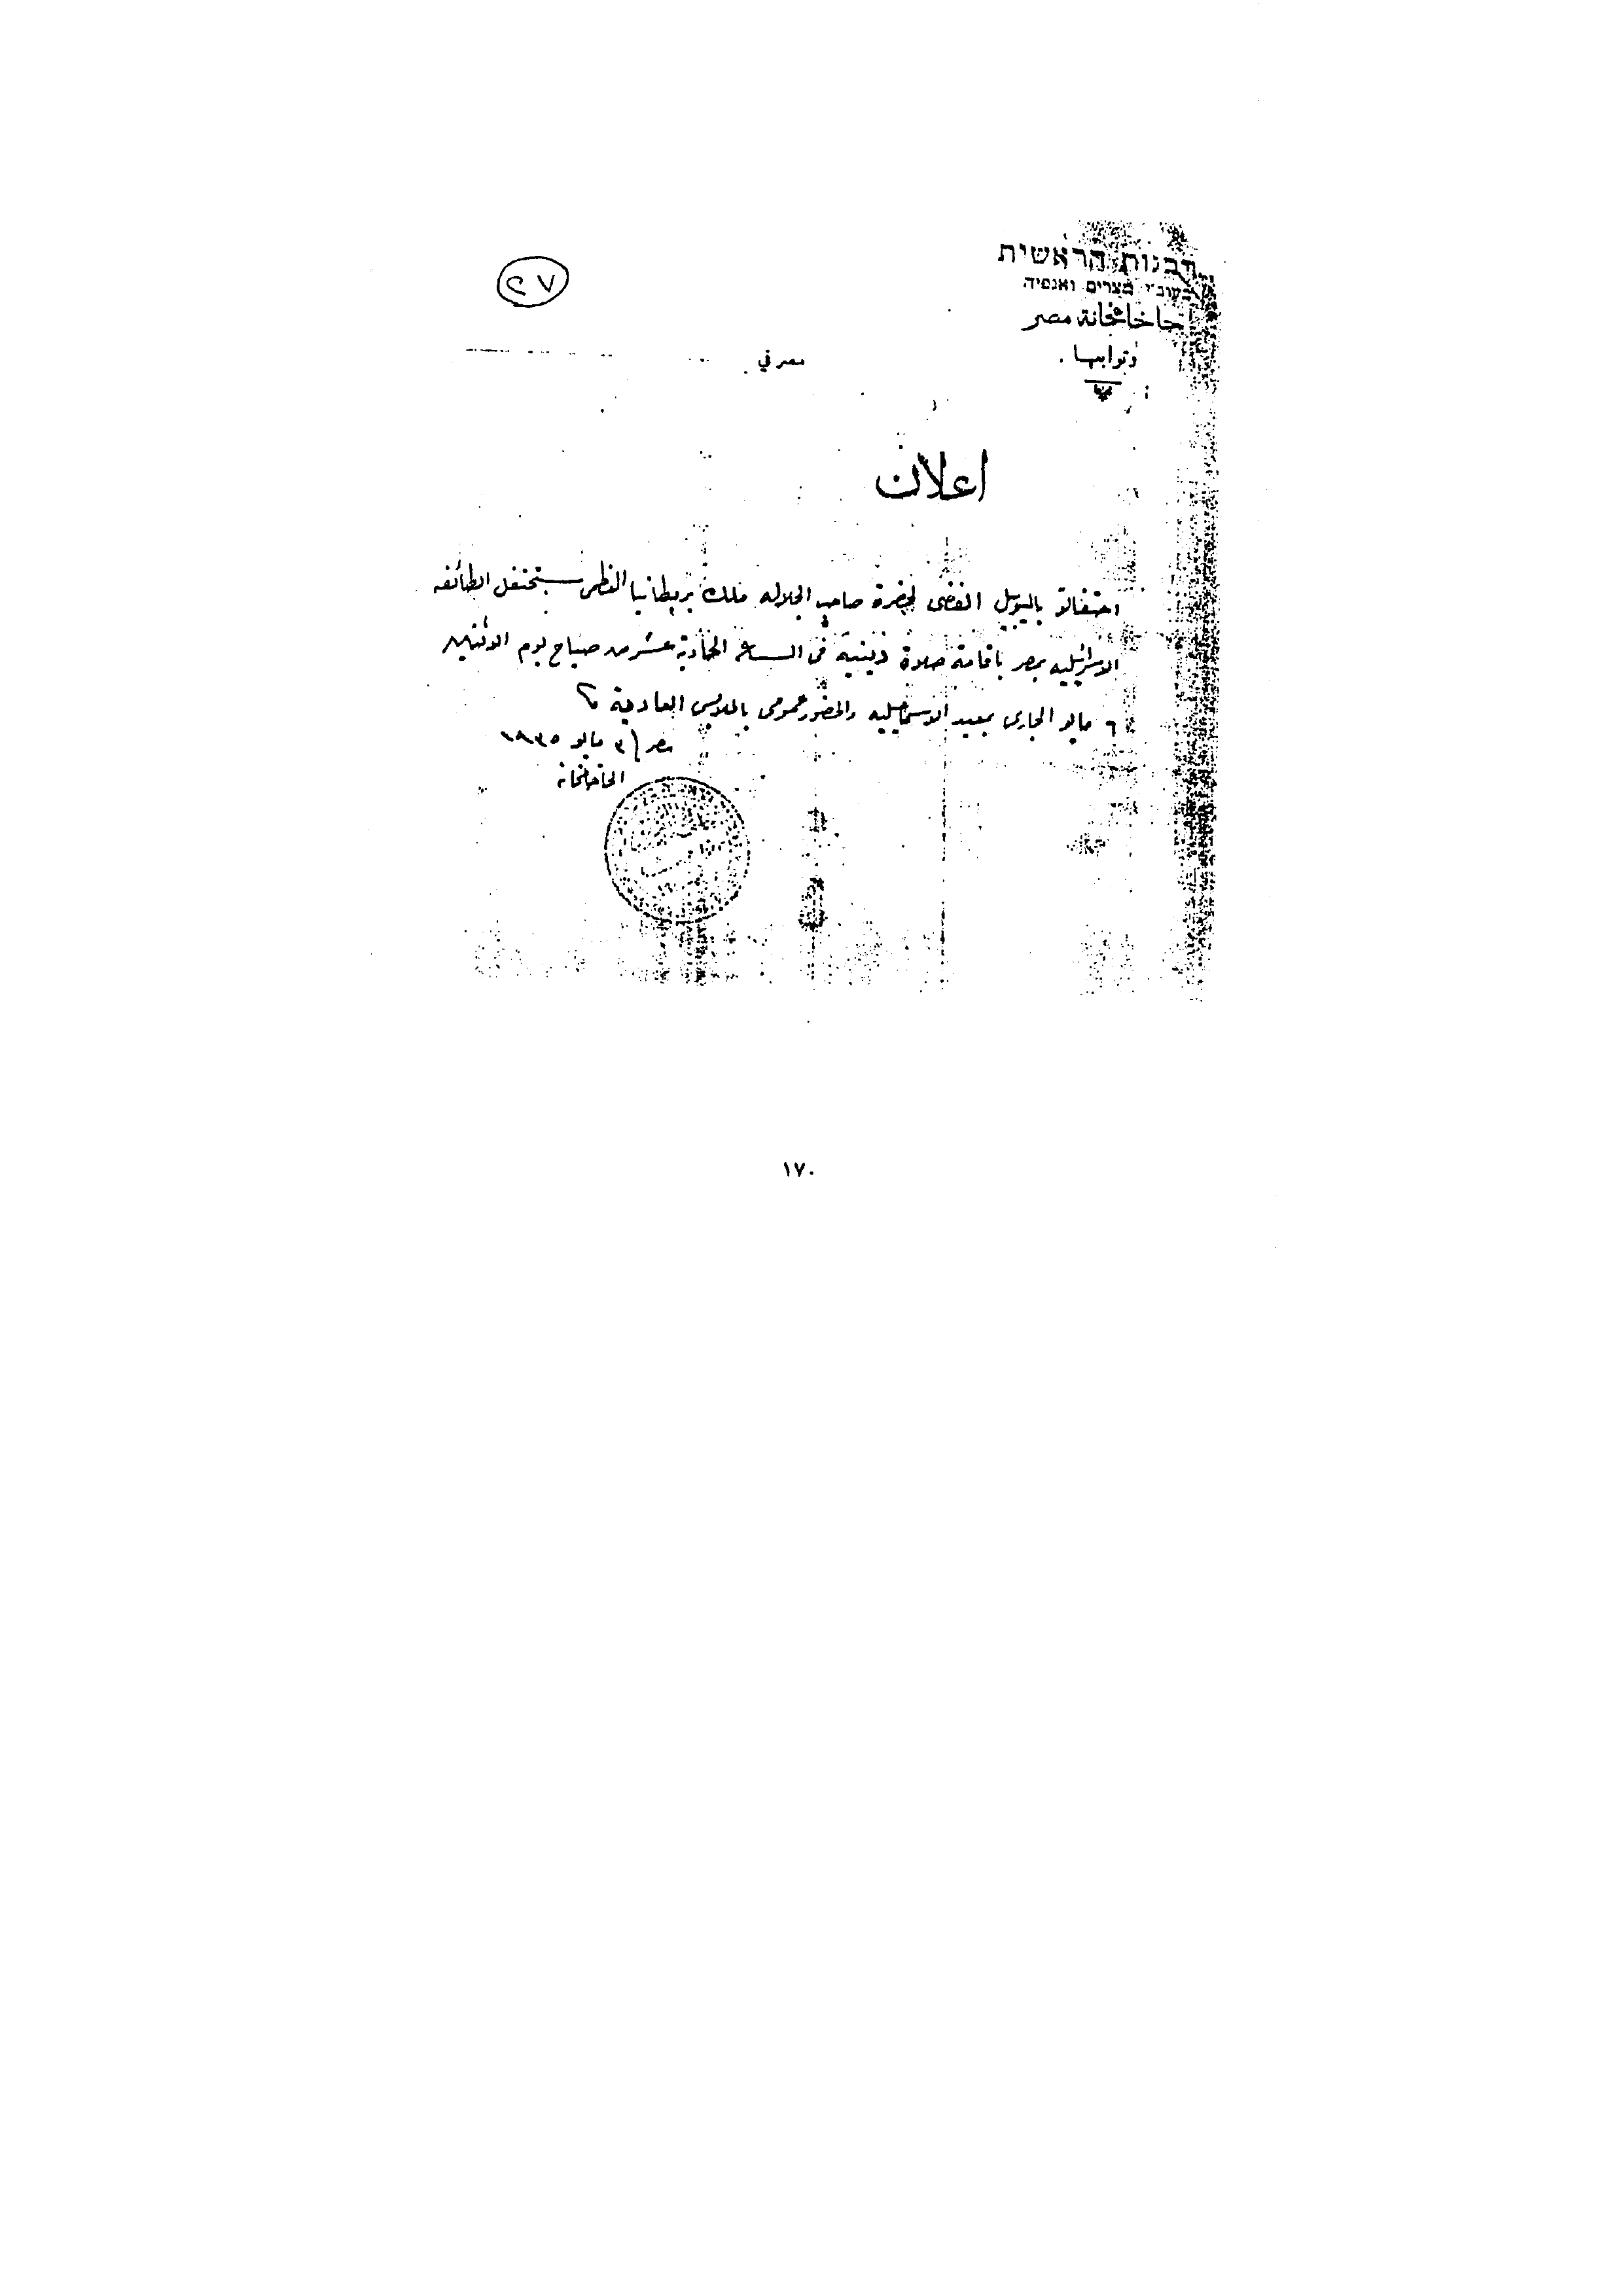 הרבנות הראשית
בעוב״י מצרים ואגפיה
حاخامخانة مصر
وتوابعها
٢٧
مصر في
اعلان
احتفالا باليوبيل الفضى لحضرة صاحب الجلاله ملك بريطانيا العظمى ستحتفل الطائفه
الاسرائيليه بمصر باقامة صلاة دينية فى الساعه الحادية عشر من صباح يوم الاثنين
٦ مايو الجارى بمعبد الاسماعيليه والحضور عمومى بالملابس العادية
مصر / ٣ مايو ١٩٣٥
الحاخامخانه
١٧٠